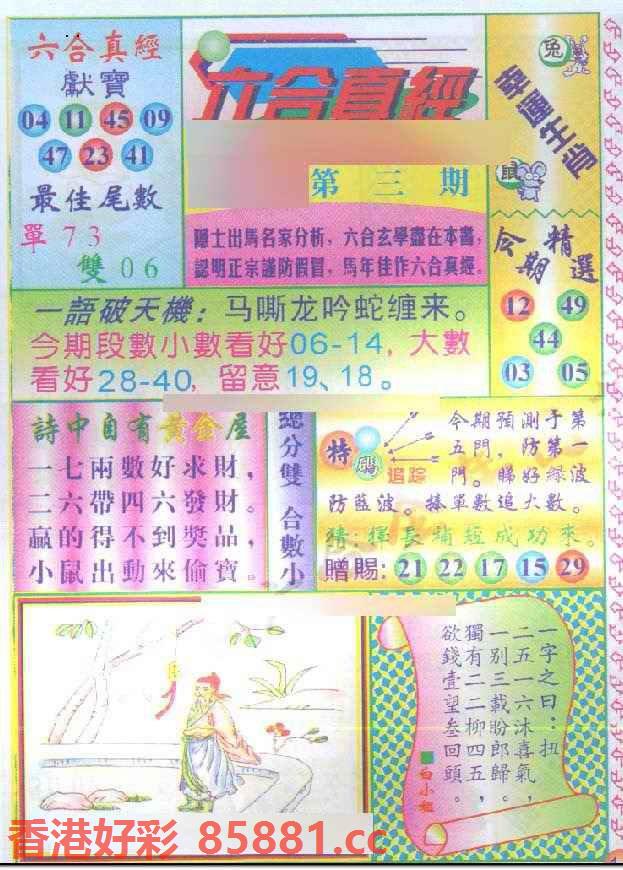 六合真經
獻寶
04 11 45 09
47 23 41
最佳尾數
單73
雙06
六合真經
第三期
隱士出馬名家分析，六合玄學盡在本書，
認明正宗謹防假冒，馬年佳作六合真經。
兔
幸運生肖
鼠
今期精選
12 49
44
03 05
一語破天機：马嘶龙吟蛇缠来。
今期段數小數看好06-14，大數
看好28-40，留意19、18。
詩中自有黄金屋
一七兩數好求財，
二六帶四六發財。
贏的得不到獎品，
小鼠出動來偷寶。
總分雙 合數小
特碼
追踪
今期預測于第
五門，防第一
門。睇好緑波
防藍波。捧單數追大數。
猜：揮長
經成功來。
贈賜：21 22 17 15 29
一字之曰：扭
二五一六沐喜氣，
一别三載盼郎歸。
獨有二二柳四五，
欲錢壹望叁回頭。
白小姐
香港好彩 85881.cc